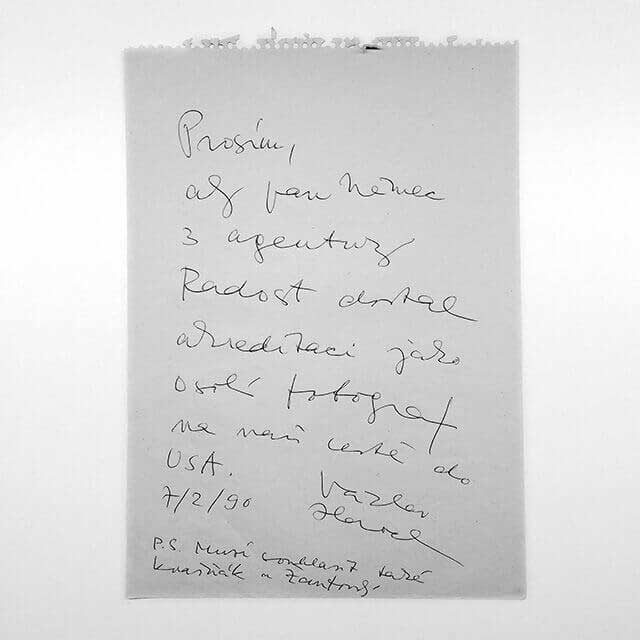 Prosím,
aby pan Němec
z agentury
Radost dostal
akreditaci jako
osobní fotograf
na naší cestě do
USA.
7/2/90
Václav
Havel
P.S. Musí souhlasit také
Křižan a Žantovský